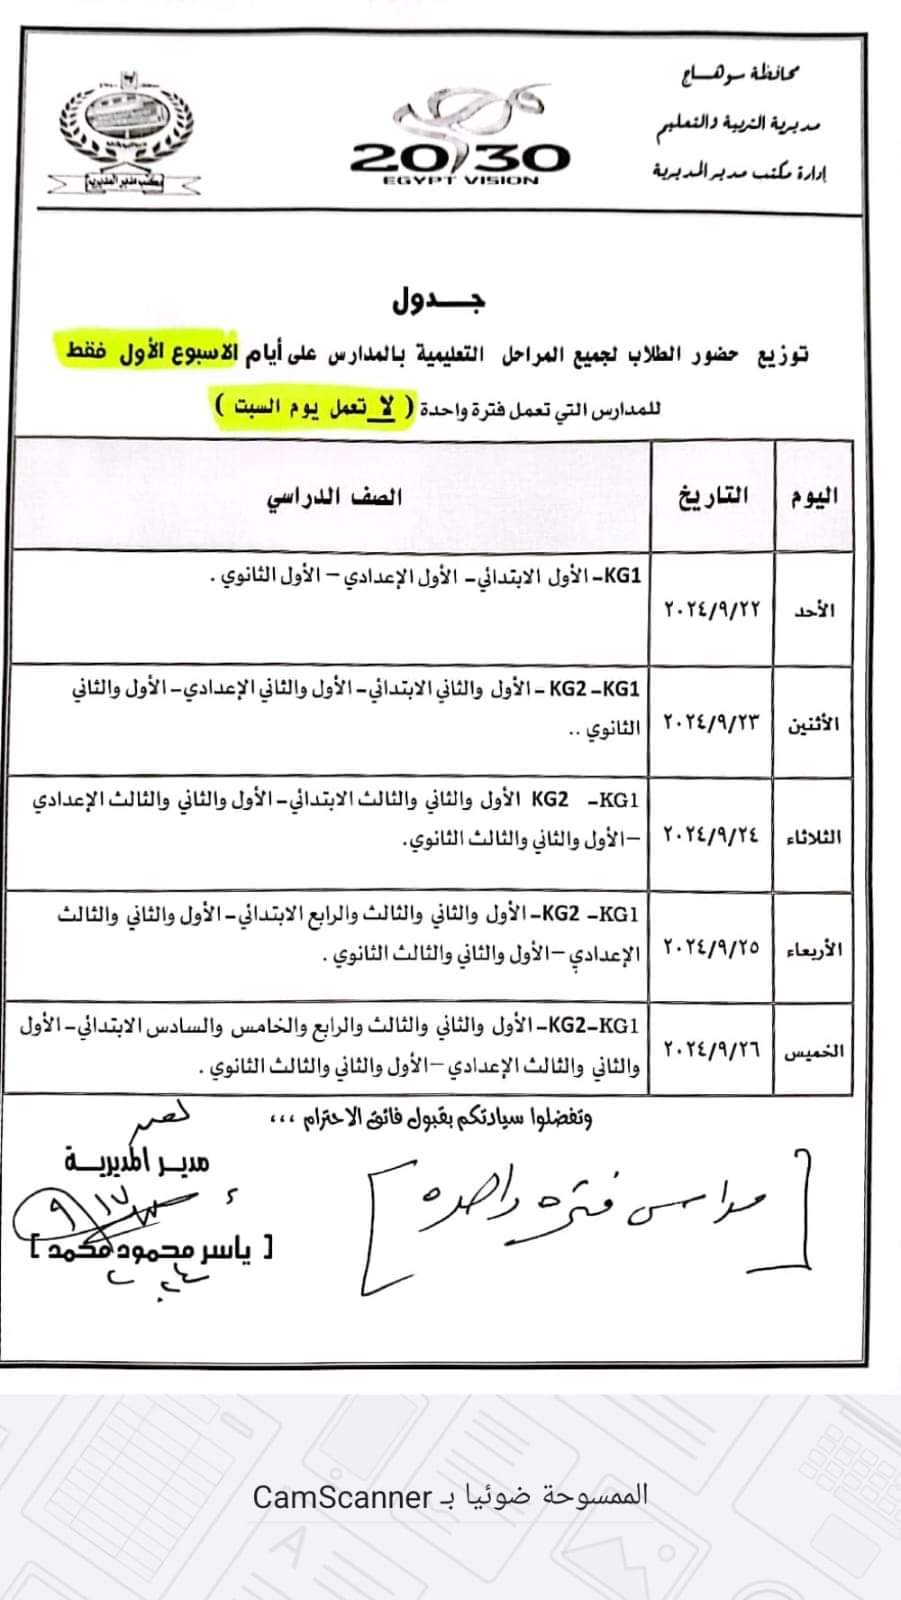 محافظة سوهـاج
مديرية التربية والتعليم
إدارة مكتب مدير المديرية
2030
EGYPT VISION
مكتب مدير المديرية
جـــدول
توزيع حضور الطلاب لجميع المراحل التعليمية بالمدارس على أيام الاسبوع الأول فقط
للمدارس التي تعمل فترة واحدة ( لا تعمل يوم السبت )
اليوم التاريخ الصف الدراسي
الأحد ٢٠٢٤/٩/٢٢ KG1- الأول الابتدائي- الأول الإعدادي – الأول الثانوي .
الأثنين ٢٠٢٤/٩/٢٣ KG2 -KG1 - الأول والثاني الابتدائي- الأول والثاني الإعدادي- الأول والثاني
الثانوي ..
الثلاثاء ٢٠٢٤/٩/٢٤ KG2 -KG1 الأول والثاني والثالث الابتدائي- الأول والثاني والثالث الإعدادي
–الأول والثاني والثالث الثانوي.
الأربعاء ٢٠٢٤/٩/٢٥ KG2 -KG1- الأول والثاني والثالث والرابع الابتدائي- الأول والثاني والثالث
الإعدادي –الأول والثاني والثالث الثانوي .
الخميس ٢٠٢٤/٩/٢٦ KG2-KG1- الأول والثاني والثالث والرابع والخامس والسادس الابتدائي- الأول
والثاني والثالث الإعدادي –الأول والثاني والثالث الثانوي .
وتفضلوا سيادتكم بقبول فائق الاحترام ،،،
مديـر المديريـة
[ ياسر محمود محمد ]
[ مدارس فتره واحده ]
الممسوحة ضوئيا بـ CamScanner